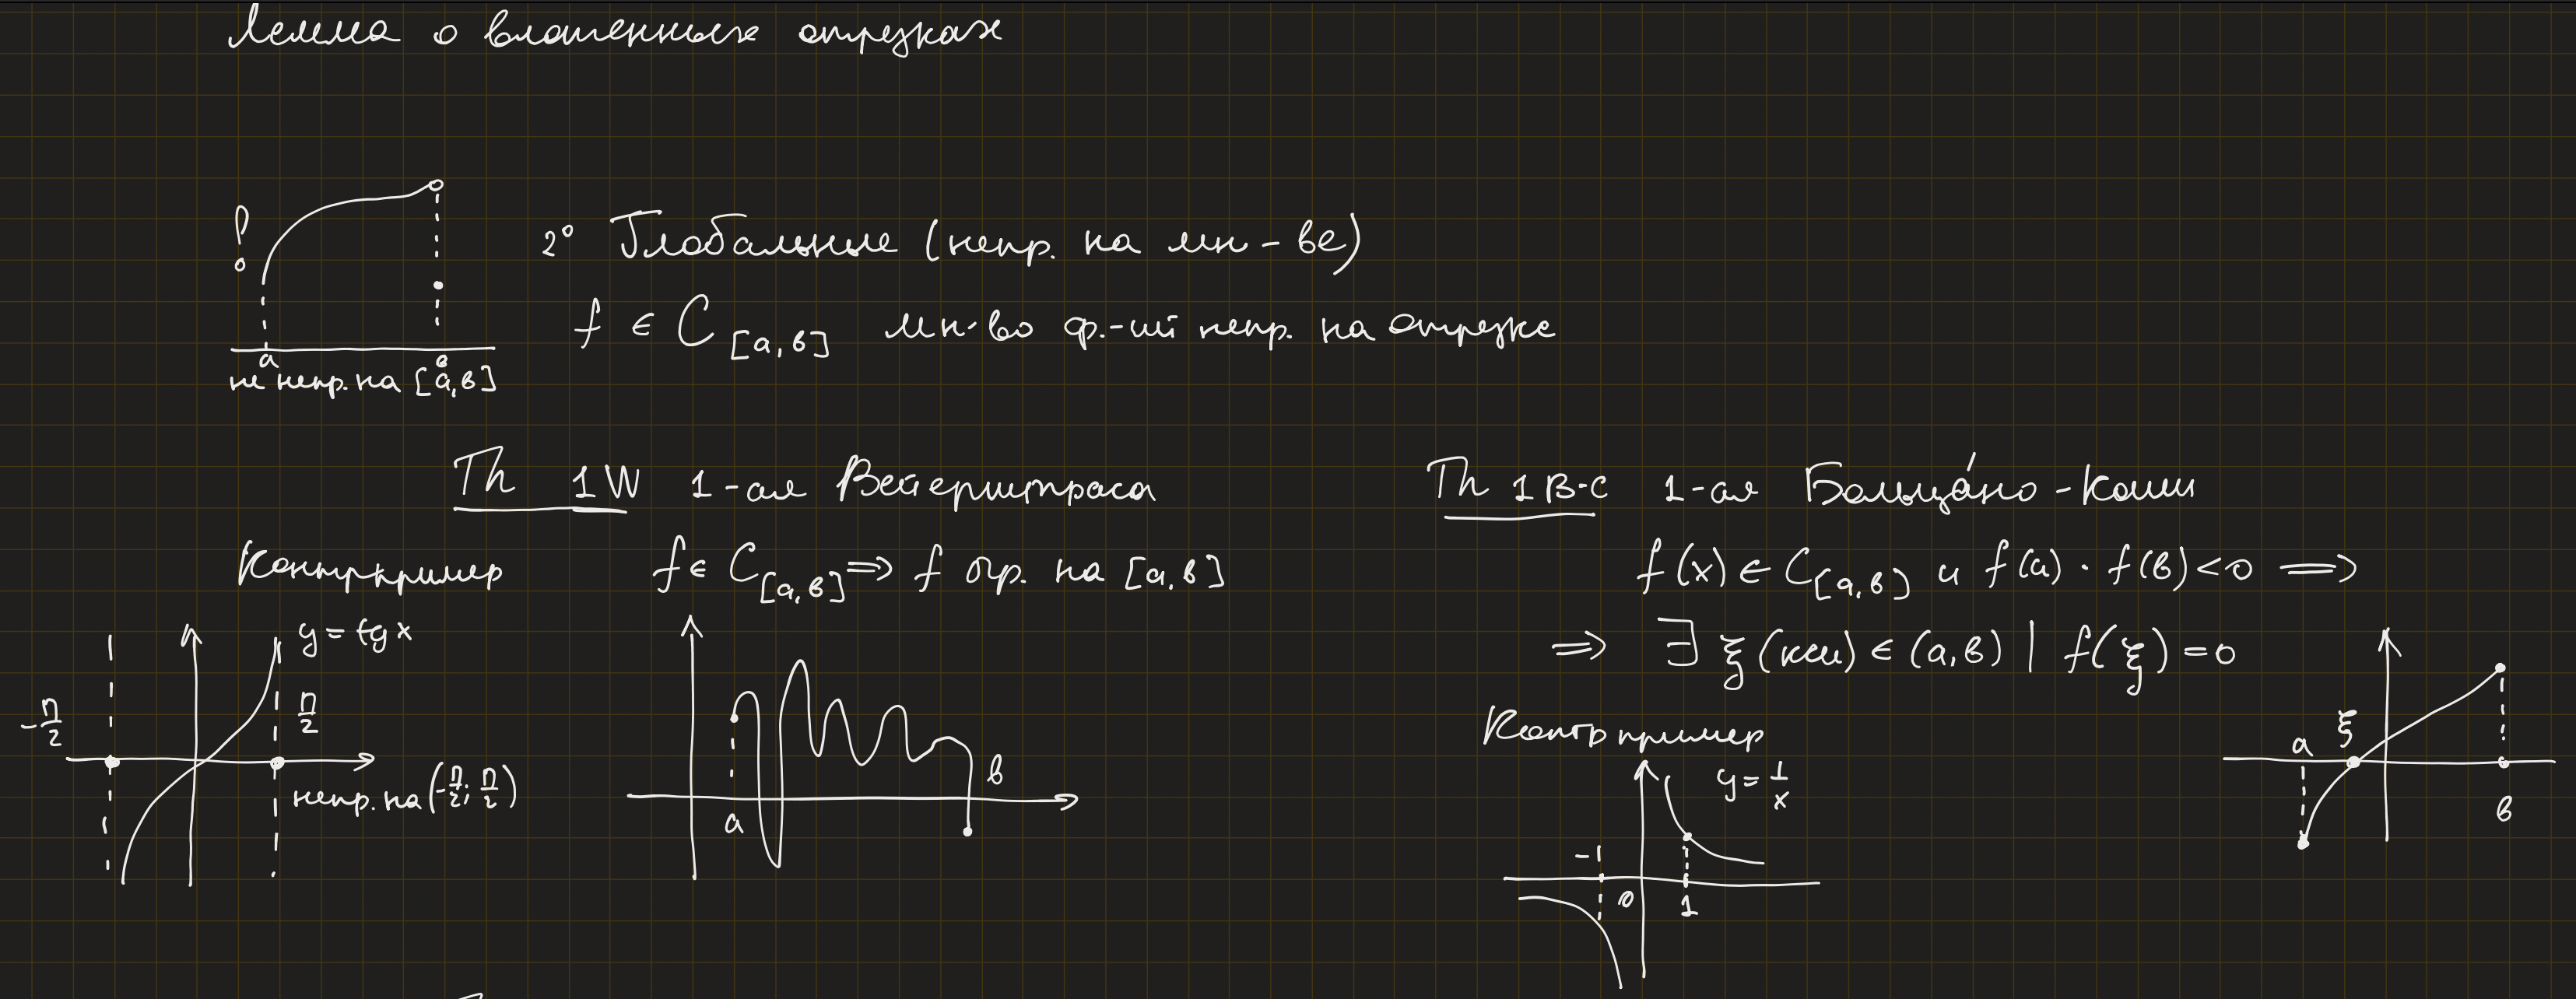 Лемма о вложенных отрезках
2° Глобальные (непр. на мн-ве)
f ∈ C[a,в] мн-во ф.-ий непр. на отрезке
!
a в
не непр. на [a,в]
Th 1W 1-ая Вейерштраса
Контрпример
f ∈ C[a,в] ⟹ f огр. на [a,в]
y = tg x
-π/2
π/2
непр. на (-π/2; π/2)
a
в
Th 1 B-C 1-ая Больцáно-Коши
f(x) ∈ C[a,в] и f(a) · f(в) < 0 ⟹
⟹ ∃ ξ (кси) ∈ (a,в) | f(ξ) = 0
Контрпример
y = 1/x
-1
0
1
a
ξ
в